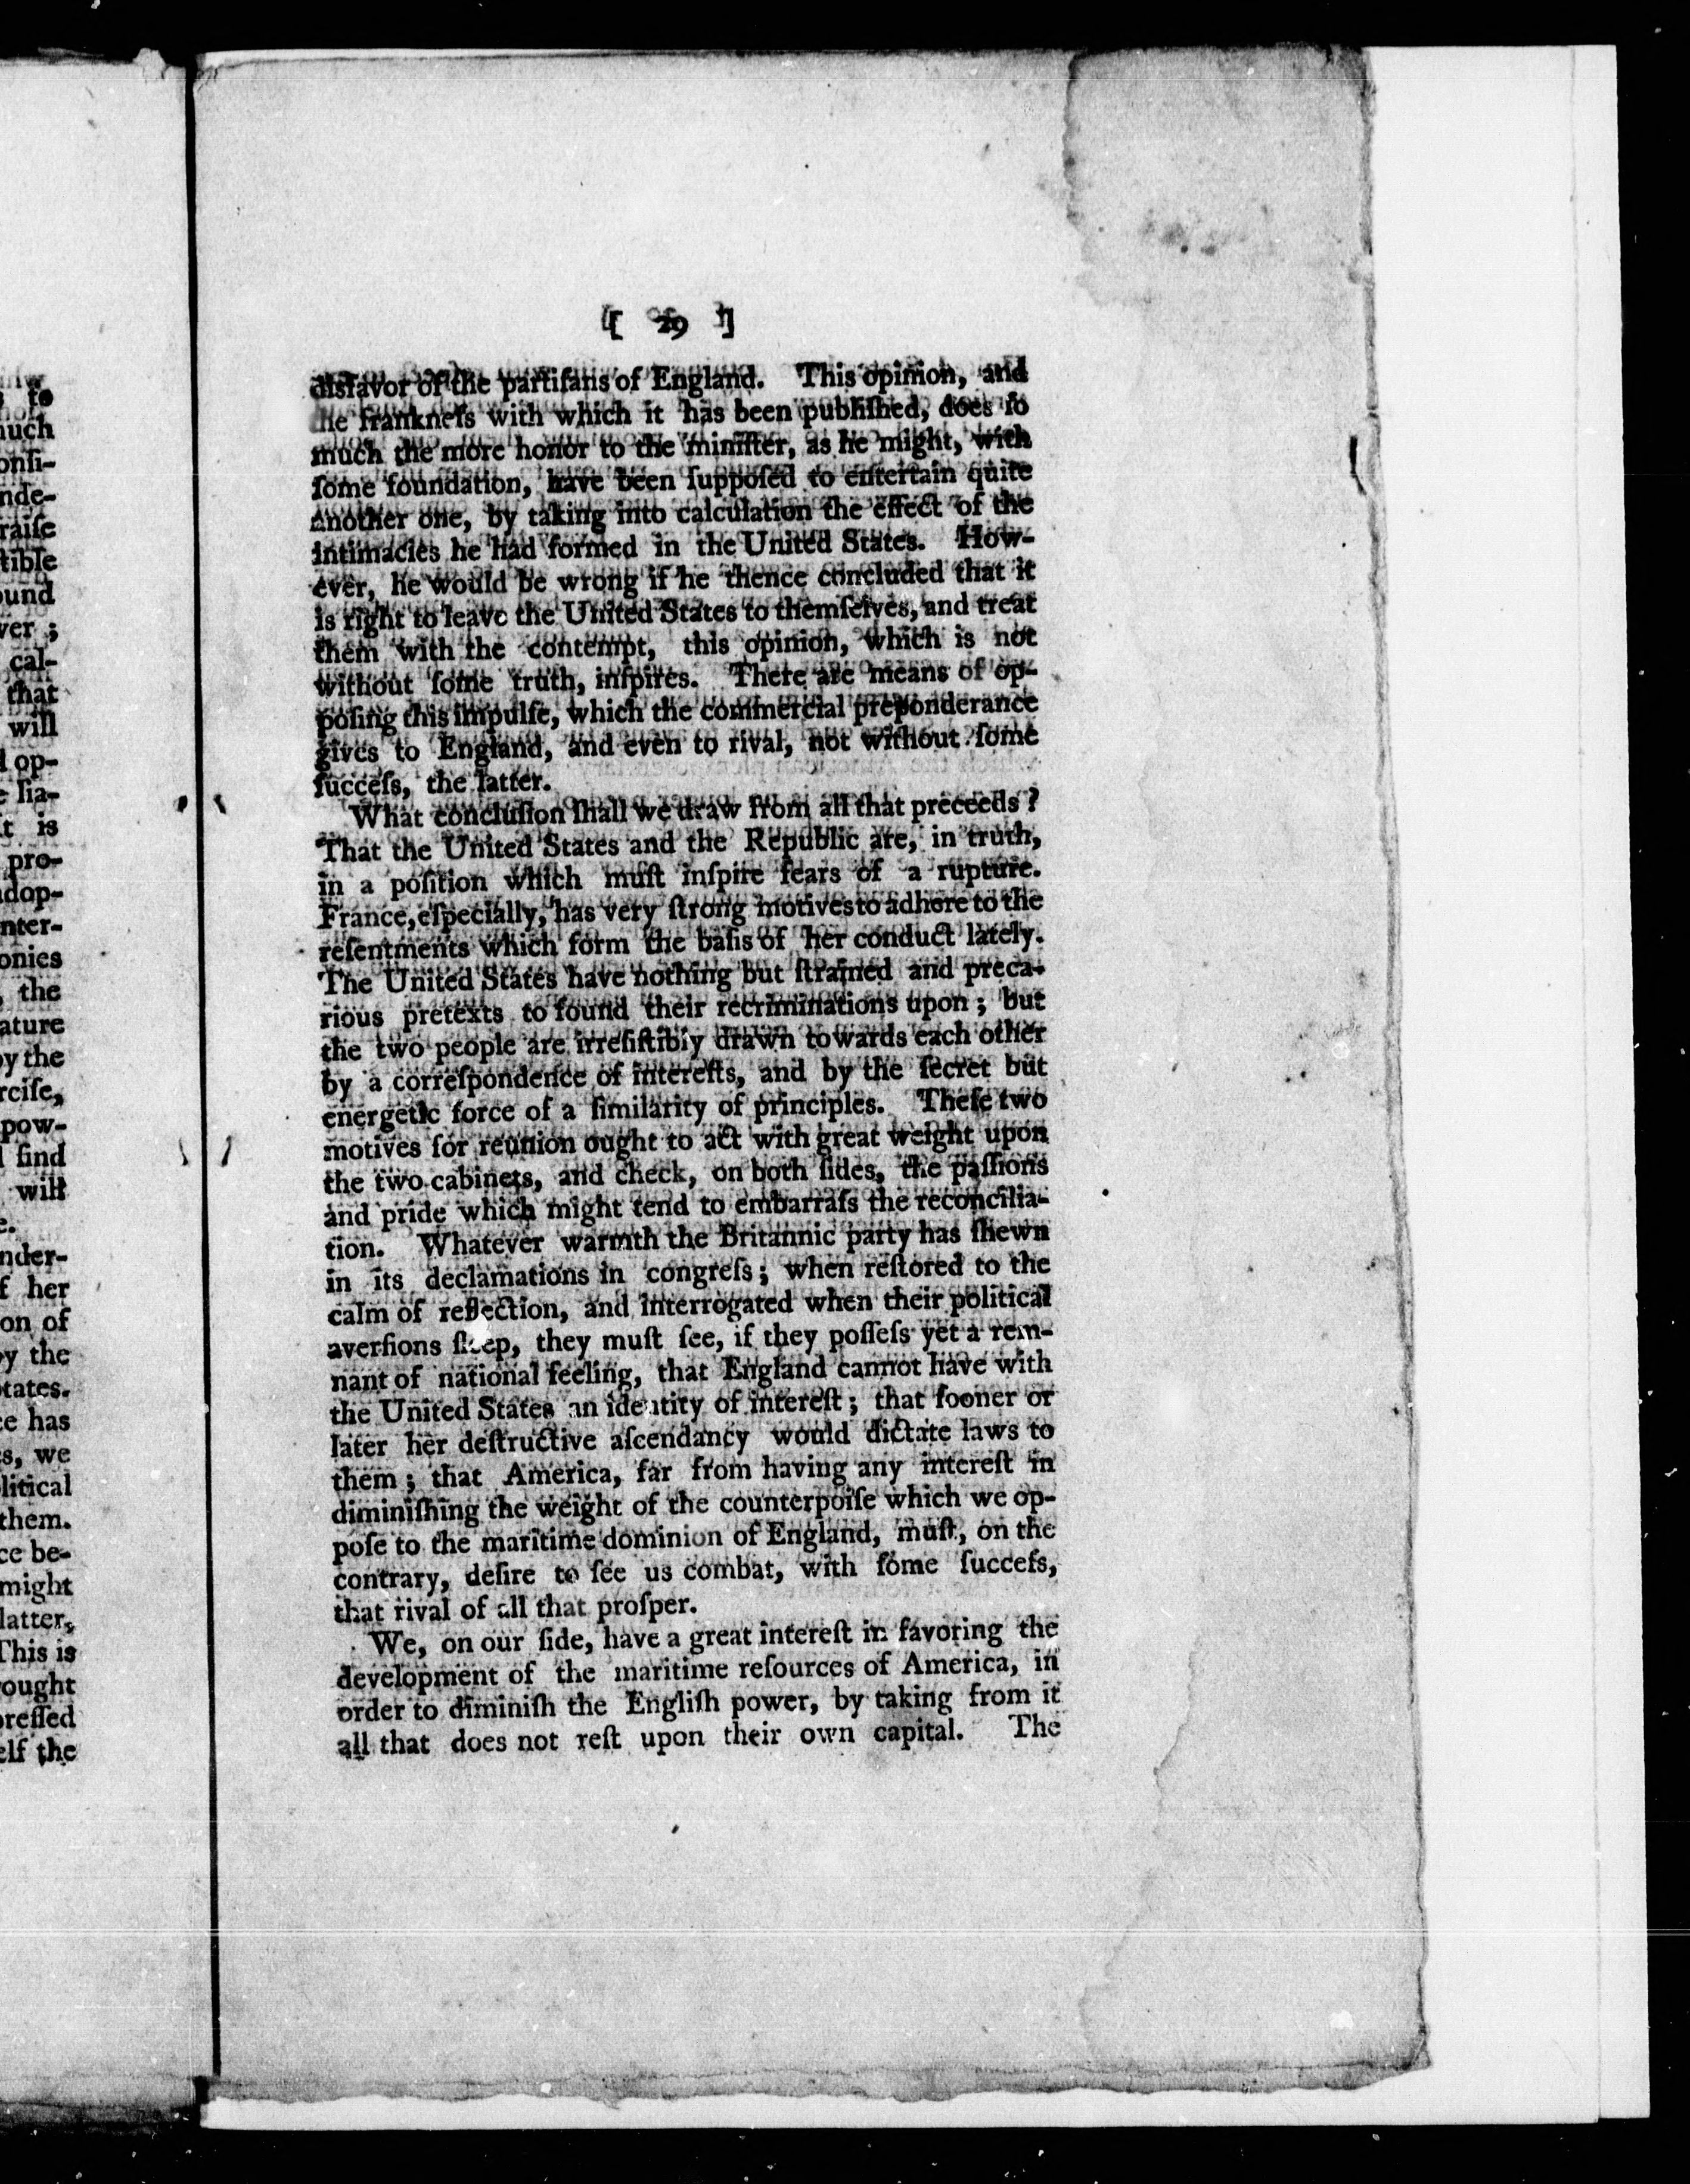 to
much
onſi-
nde-
raiſe
tible
ound
ver ;
cal-
that
will
op-
lia-
it is
pro-
adop-
nter-
onies
, the
ature
by the
rciſe,
pow-
find
will
e.
nder-
f her
on of
by the
tates.
ce has
s, we
litical
them.
ce be-
might
latter,
This is
ought
preſſed
elf the
[ 29 ]
disfavor of the partiſans of England. This opinion, and
he frankneſs with which it has been publiſhed, does ſo
much the more honor to the miniſter, as he might, with
ſome foundation, have been ſuppoſed to entertain quite
another one, by taking into calculation the effect of the
intimacies he had formed in the United States. How-
ever, he would be wrong if he thence concluded that it
is right to leave the United States to themſelves, and treat
them with the contempt, this opinion, which is not
without ſome truth, inſpires. There are means of op-
poſing this impulſe, which the commercial preponderance
gives to England, and even to rival, not without ſome
ſucceſs, the latter.
What concluſion ſhall we draw from all that preceeds ?
That the United States and the Republic are, in truth,
in a poſition which muſt inſpire fears of a rupture.
France, eſpecially, has very ſtrong motives to adhere to the
reſentments which form the baſis of her conduct lately.
The United States have nothing but ſtrained and preca-
rious pretexts to found their recriminations upon ; but
the two people are irreſiſtibly drawn towards each other
by a correſpondence of intereſts, and by the ſecret but
energetic force of a ſimilarity of principles. Theſe two
motives for reunion ought to act with great weight upon
the two cabinets, and check, on both ſides, the paſſions
and pride which might tend to embarraſs the reconcilia-
tion. Whatever warmth the Britannic party has ſhewn
in its declamations in congreſs ; when reſtored to the
calm of reflection, and interrogated when their political
averſions ſleep, they muſt ſee, if they poſſeſs yet a rem-
nant of national feeling, that England cannot have with
the United States an identity of intereſt ; that ſooner or
later her deſtructive aſcendancy would dictate laws to
them ; that America, far from having any intereſt in
diminiſhing the weight of the counterpoiſe which we op-
poſe to the maritime dominion of England, muſt, on the
contrary, deſire to ſee us combat, with ſome ſucceſs,
that rival of all that proſper.
We, on our ſide, have a great intereſt in favoring the
development of the maritime reſources of America, in
order to diminiſh the Engliſh power, by taking from it
all that does not reſt upon their own capital. The